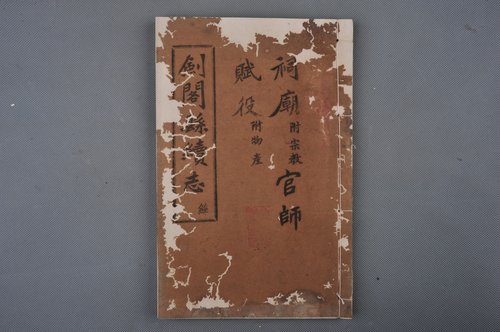 祠廟附宗教官師
賦役附物產
劍閣縣續志